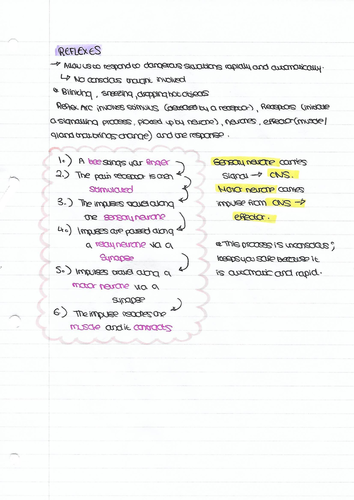 REFLEXES
→ Allow us to respond to dangerous situations rapidly and automatically.
↳ No conscious thought involved
* Blinking, sneezing, dropping hot objects
Reflex Arc involves stimulus (detected by a receptor), Receptors (initiate
a signalling process, picked up by neurone), neurones, effector (muscle/
gland that brings change) and the response.
1.) A bee stings your finger
2.) The pain receptor is then
stimulated
3.) The impulses travel along
the sensory neurone
4.) Impulses are passed along
a relay neurone via a
synapse
5.) Impulses travel along a
motor neurone via a
synapse
6.) The impulse reaches the
muscle and it contracts
Sensory neurone carries
signal → CNS.
Motor neurone carries
impulse from CNS →
effector.
* This process is unconscious;
keeps you safe because it
is automatic and rapid.